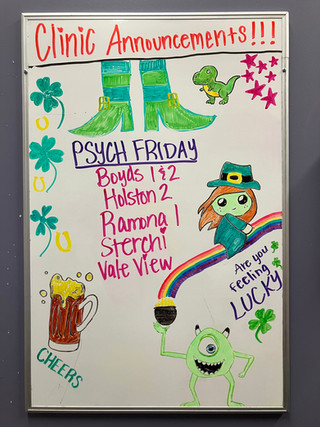 Clinic Announcements!!!
PSYCH FRIDAY
Boyds 1 & 2
Holston 2
Ramona 1
Sterchi
Vale View
Are you
feeling
LUCKY
CHEERS